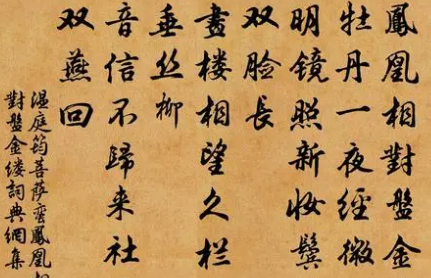 鳳凰相對盤金
牡丹一夜經微
明鏡照新妝鬢
双脸長
畫楼相望久栏
垂丝柳
音信不歸来社
双燕回
温庭筠菩萨蛮鳳凰相
對盤金缕詞典網集